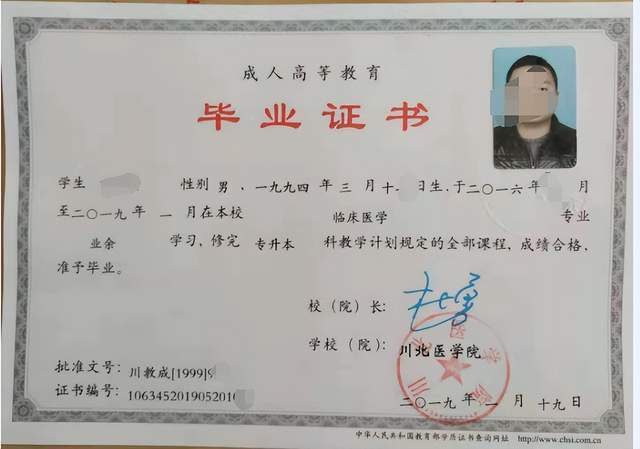 成人高等教育
毕业证书
学生 性别 男，一九九四 年 三 月 十 日生，于二〇一六 年 月
至二〇一九 年 一 月在本校 临床医学 专业
业余 学习，修完 专升本 科教学计划规定的全部课程，成绩合格，
准予毕业。
校（院）长：
学校（院）：川北医学院
批准文号：川教成[1999]
证书编号：10634520190520
二〇一九 年 一 月 十九日
中华人民共和国教育部学历证书查询网址 http://www.chsi.com.cn